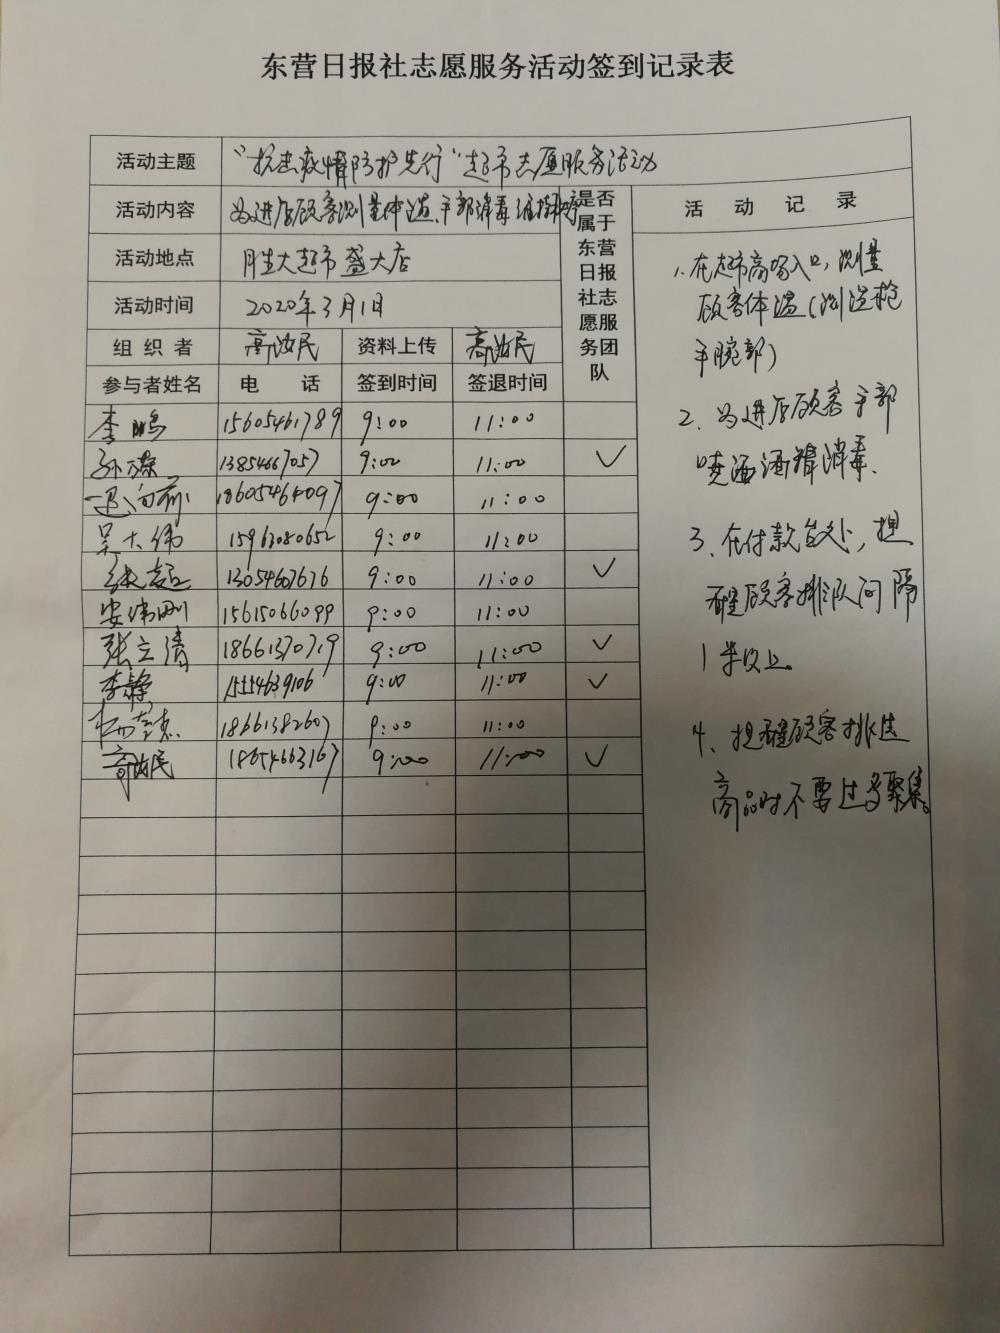 东营日报社志愿服务活动签到记录表
活动主题 "抗击疫情防护先行"超市志愿服务活动
活动内容 为进店顾客测量体温、手部消毒 是否属于东营日报社志愿服务团队 活动记录
活动地点 胜大超市盛大店
活动时间 2020年3月1日
组织者 高汝民 资料上传 高汝民
参与者姓名 电话 签到时间 签退时间
李鹏 15605461789 9:00 11:00
13854667057 9:00 11:00 ✓
18605464097 9:00 11:00
吴大伟 15963080652 9:00 11:00
张超 13054607676 9:00 11:00 ✓
安伟刚 15615066099 9:00 11:00
张立清 18661370719 9:00 11:00 ✓
李静 15554639106 9:00 11:00 ✓
18661382607 9:00 11:00
高汝民 18654663167 9:00 11:00 ✓
1、在超市商场入口,测量
顾客体温(测温枪
手腕部)
2、为进店顾客手部
喷洒酒精消毒、
3、在付款台处,提
醒顾客排队间隔
1米以上
4、提醒顾客挑选
商品时不要过多聚集。